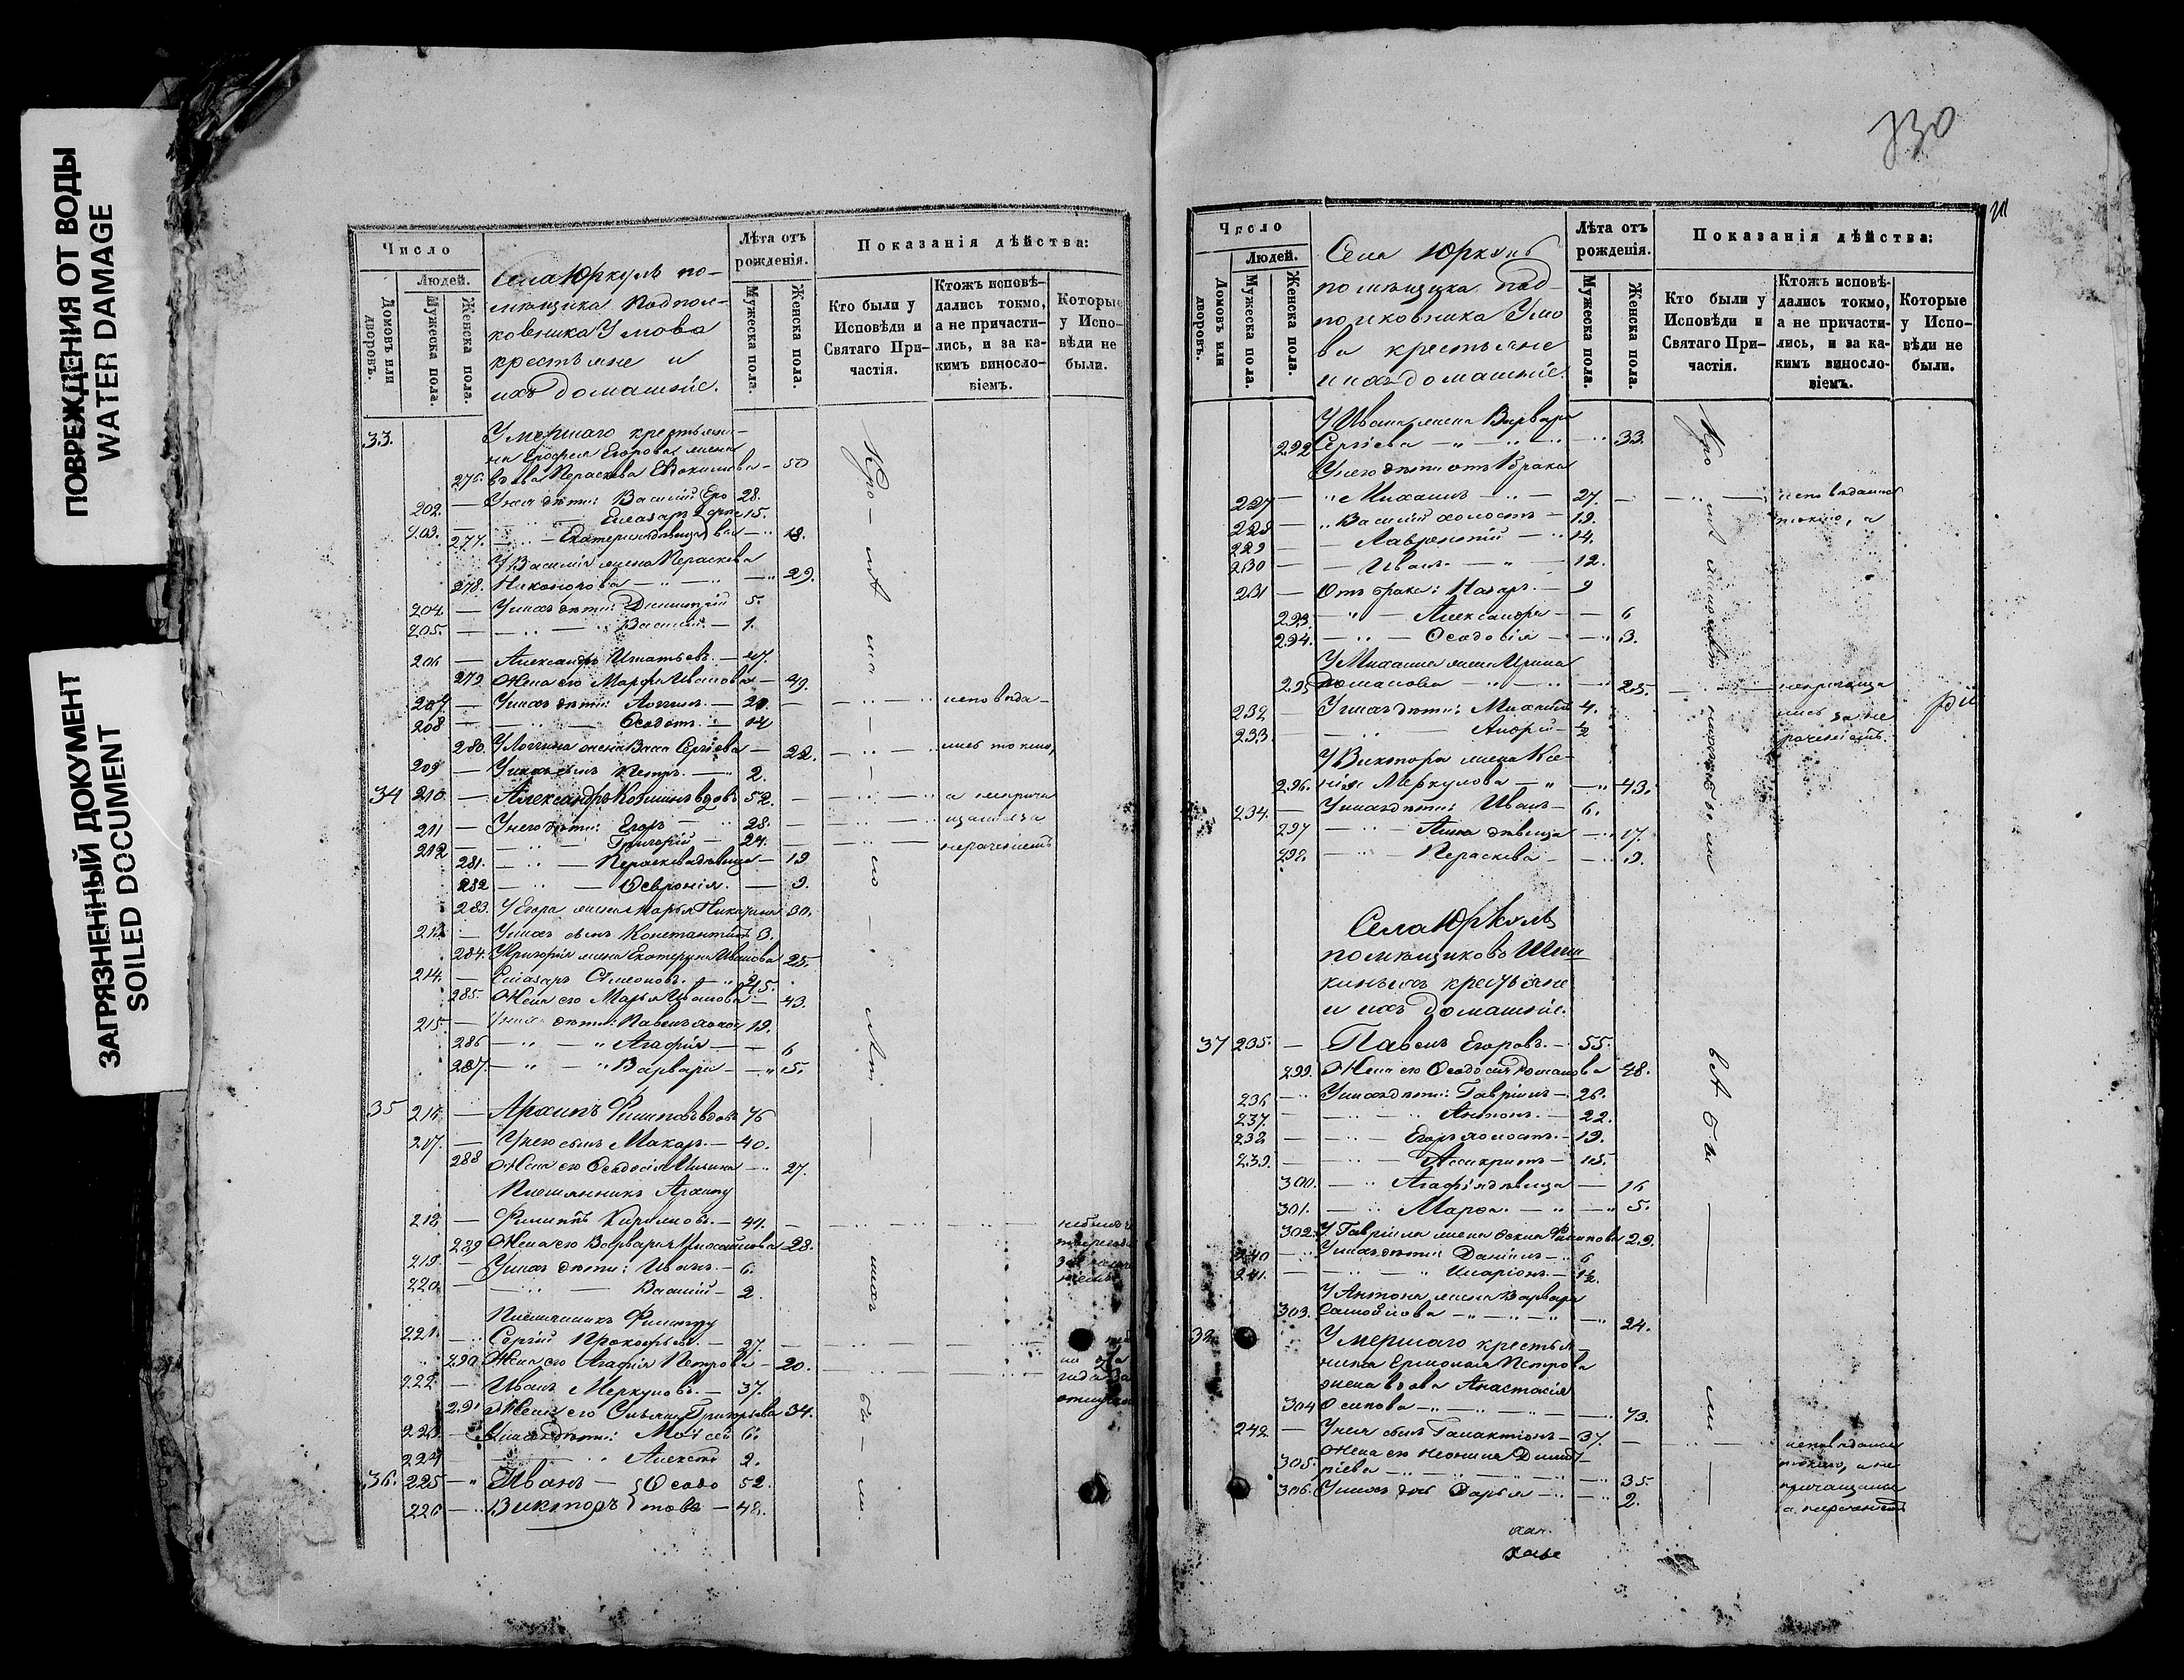 ПОВРЕЖДЕНИЯ ОТ ВОДЫ
WATER DAMAGE
ЗАГРЯЗНЕННЫЙ ДОКУМЕНТ
SOILED DOCUMENT
Число
Людей.
Домовъ или дворовъ.
Мужеска пола.
Женска пола.
Села Юркуль по-
мѣщика Подпол-
ковника Умова
крестьяне и
ихъ домашніе.
Лѣта отъ рожденія.
Мужеска пола.
Женска пола.
Показанія дѣйства:
Кто были у Исповѣди и Святаго При-частія.
Ктожъ исповѣ-дались токмо, а не причасти-лись, и за ка-кимъ виносло-віемъ.
Которые у Испо-вѣди не были.
33. Умершаго крестьяни-
на Ерофея Егорова жена
276. вдова Параскева Евдокимова — 50
202. — У нея дѣти: Василій 28.
203. — Елеазаръ 15.
277. — Екатерина дѣвица — 18.
У Василія жена Параскева
278. Никонорова — 29.
204. — У нихъ дѣти: Димитрій 5.
205. — Василій — 1.
206 — Александръ Игнатьевъ — 47.
279 Жена его Марфа Иванова — 49.
207 — У нихъ дѣти: Логгинъ — 20. — исповѣда-
208 — Ѳедотъ — 14
280. У Логгина жена Васса Сергіева — 22. — лись токмо,
209 — У нихъ сынъ Петръ — 2.
34 210 — Александръ Козминъ вдовъ 52. — а не прича
211 — У него дѣти: Егоръ — 28. — щались за
212 — Григорій — 24. — нераченіемъ
281. — Параскева дѣвица — 19
282 — Ѳевронія — 9.
283. У Егора жена Марья 30.
213 — У нихъ сынъ Константинъ 3.
284. У Григорія жена Екатерина Иванова 25.
214. — Елеазаръ Симеоновъ — 45.
285. Жена его Марья Иванова — 43.
215. — У нихъ дѣти: Павелъ 19.
286 — Агафія — 6
287. — Варвара — 5.
35 216. — Архипъ Филиповъ вдовъ 76
217. — У него сынъ Макаръ — 40.
288 Жена его Ѳеодосія Ильина — 27.
Племянникъ Архипу
218 — Филиппъ Кириловъ — 41.
289 Жена его Варвара Михайлова — 28.
219. — У нихъ дѣти: Иванъ — 6.
220. — Василій — 2.
Племянникъ Филиппу
221. — Сергій Прокофьевъ — 27.
290 Жена его Агафія Петрова — 20.
222. — Иванъ Меркуловъ — 37.
291 Жена его Ульяна Григорьева 34.
223. — У нихъ дѣти: Моисей 6.
224 — Алексѣй 2.
36. 225 — Иванъ — Ѳедо 52.
226 — Викторъ товы — 48.
730
Число
Людей.
Домовъ или дворовъ.
Мужеска пола.
Женска пола.
Села Юркуль
помѣщика Под-
полковника Умо
ва крестьяне
и ихъ домашніе.
Лѣта отъ рожденія.
Мужеска пола.
Женска пола.
Показанія дѣйства:
Кто были у Исповѣди и Святаго При-частія.
Ктожъ исповѣ-дались токмо, а не причасти-лись, и за ка-кимъ виносло-віемъ.
Которые у Испо-вѣди не были.
У Ивана жена Варвара
292 Сергіева — 33.
У него дѣти отъ 1 брака
227 — Михаилъ — 27. — исповѣдались
228 — Василій холостъ — 19. токмо, а
229 — Лаврентій — 14.
230 — Иванъ — 12.
231 — Отъ брака: Назаръ — 9
293. — Александра — 6
294. — Ѳеодосія — 3.
У Михаила жена Ирина
295 Романова — 25.
232 — У нихъ дѣти: Михаилъ 4.
233 — Андрей — ½
У Виктора жена Ксе-
296. нія Меркулова — 43.
234. — У нихъ дѣти: Иванъ — 6.
297 — Анна дѣвица — 17.
298. — Параскева — 9.
Села Юркуль
помѣщиковъ Шиш
киныхъ крестьяне
и ихъ домашніе.
37 235. — Павелъ Егоровъ — 55.
299. Жена его Ѳеодосія Романова 48.
236 — У нихъ дѣти: Гавріилъ — 26.
237. — Антонъ — 22.
238 — Егоръ холостъ — 19.
239. — Асинкритъ — 15.
300. — Агафія дѣвица — 16
301. — Марфа — 5.
302. У Гавріила жена Ѳекла Филипова 29.
240 — У нихъ дѣти: Даніилъ — 6
241. — Иларіонъ — 1½.
У Антона жена Варвара
303. Самойлова — 24.
38 Умершаго крестья-
нина Ермолая Петрова
жена вдова Анастасія
304 Осипова — 73.
242 — У нея сынъ Галактіонъ — 37. — исповѣдались
305. Жена его Неонила Димит- токмо, а не
ріева — 35. причащались
306. У нихъ дочь Дарья — 2. за нераченіемъ